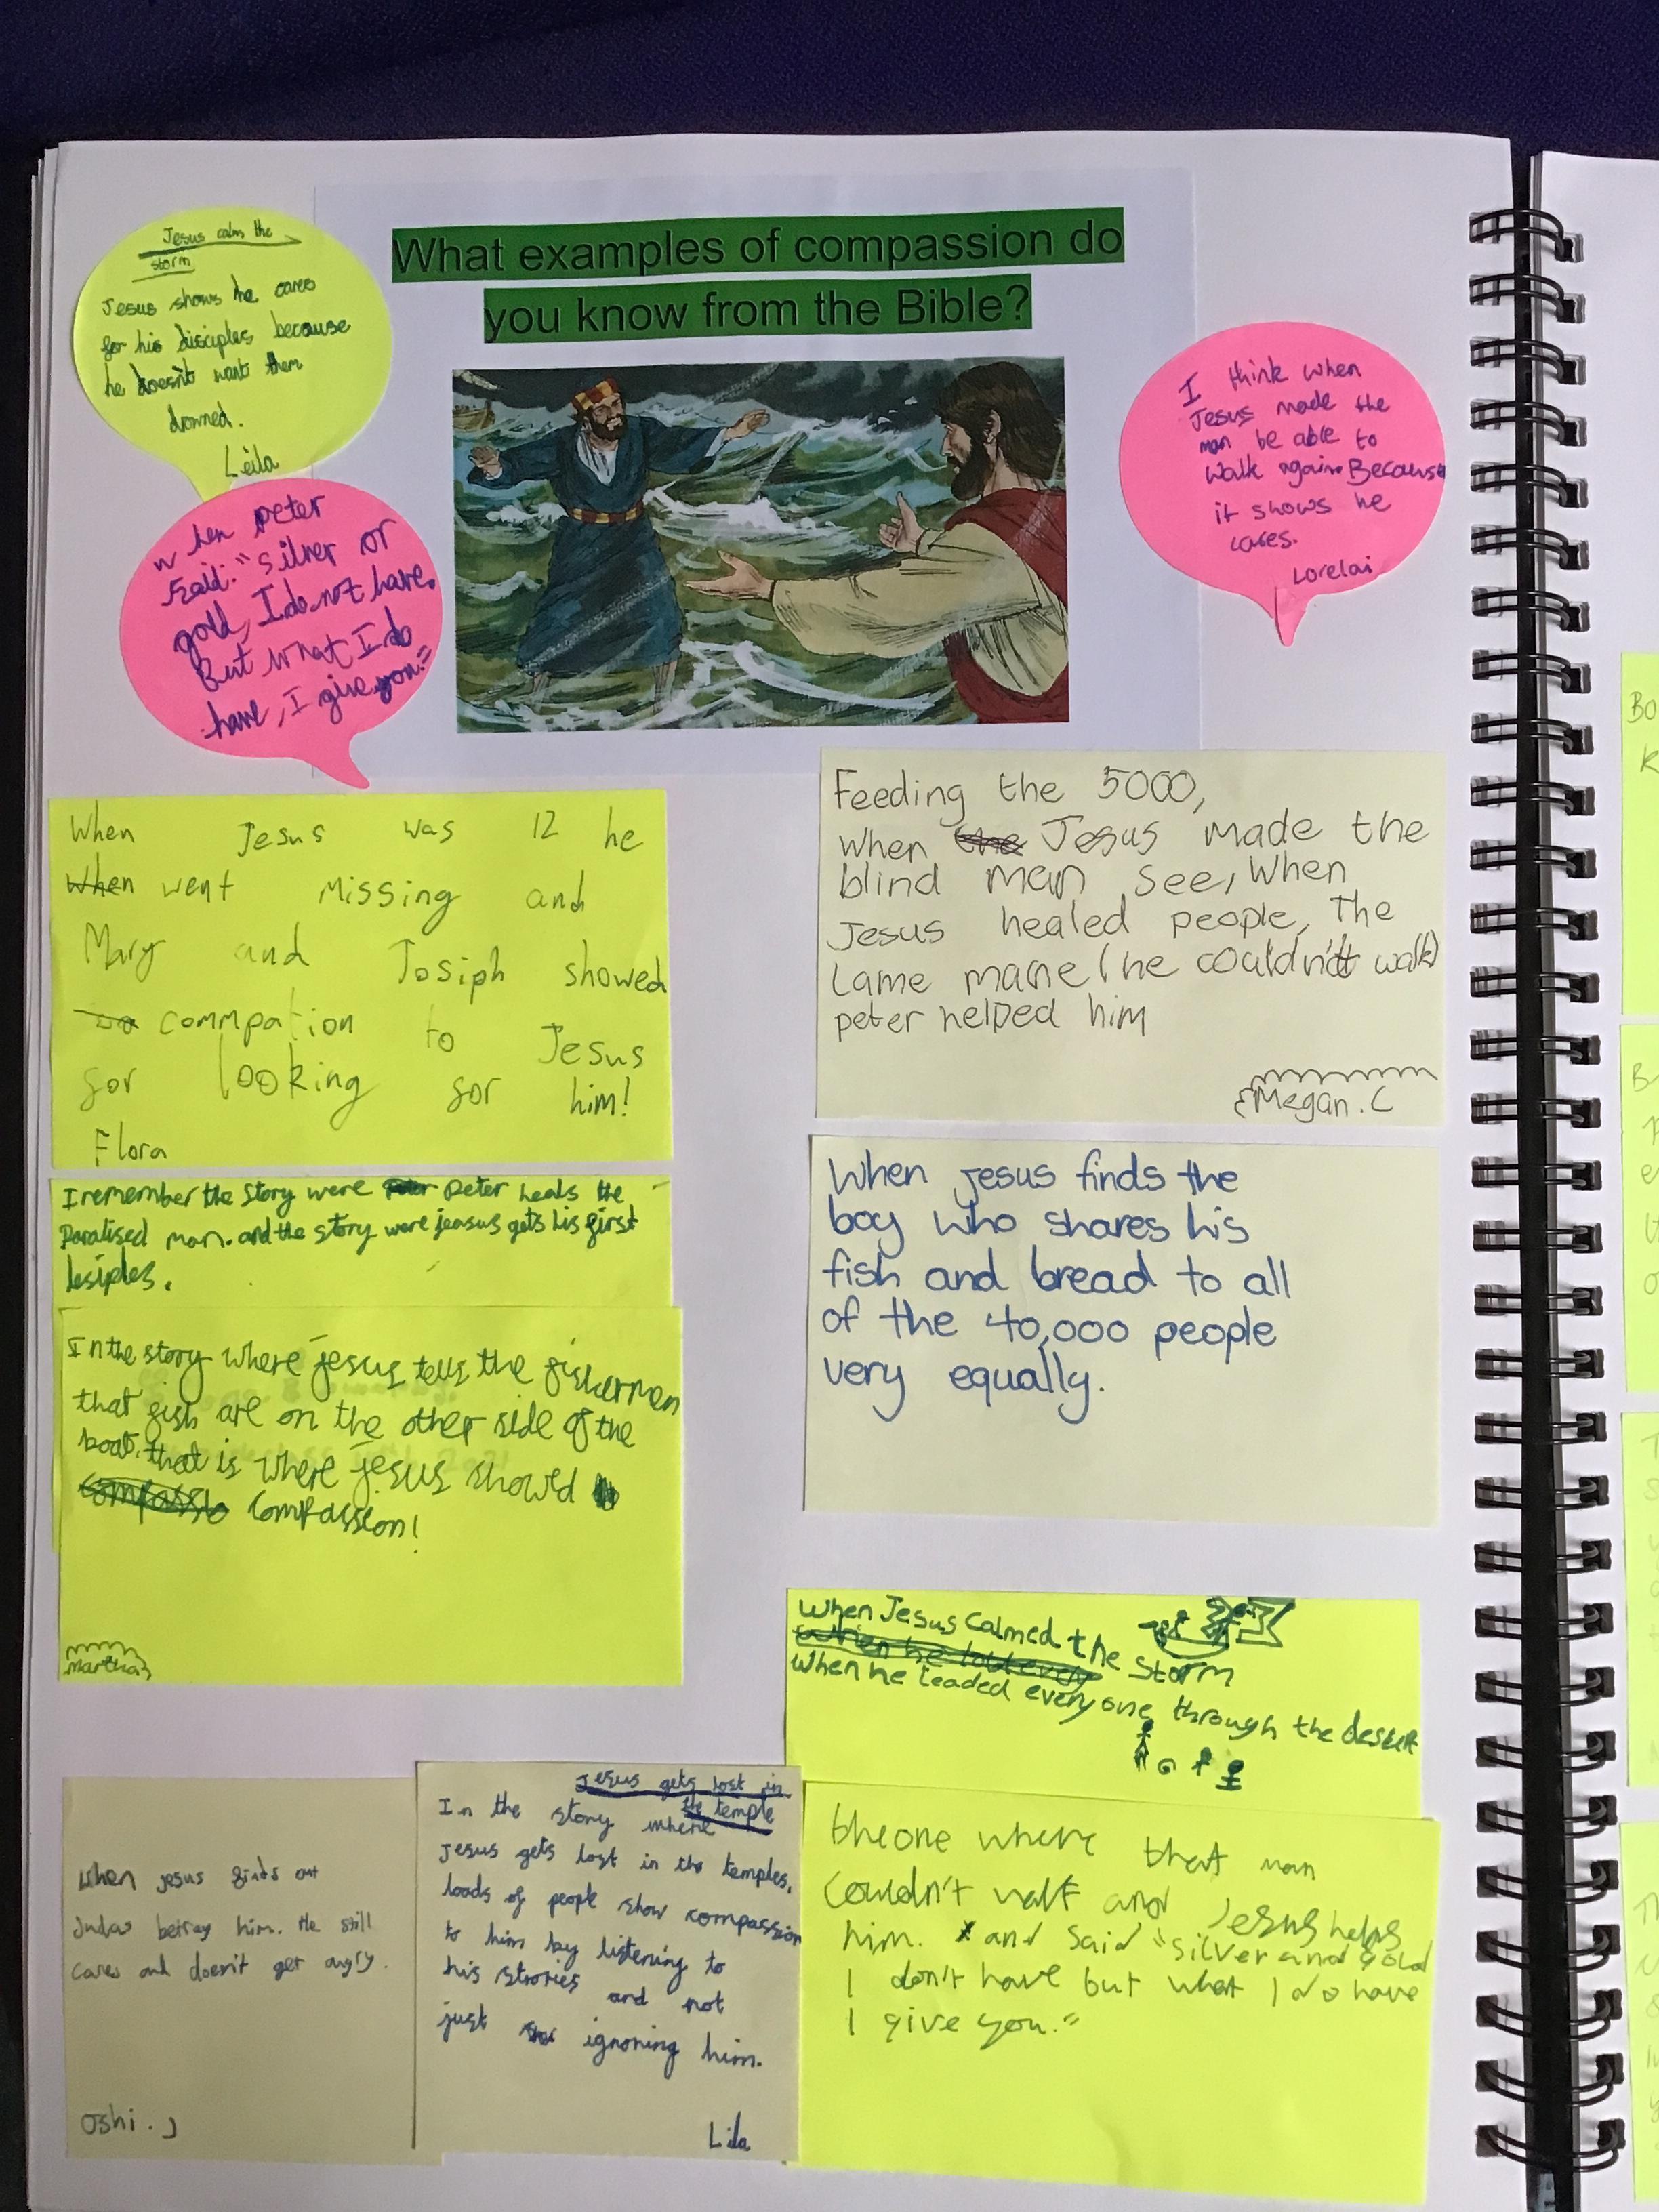 What examples of compassion do
you know from the Bible?
Jesus calm the
storm
Jesus shows he cares
for his disciples because
he doesn't want them
drowned.
Leila
when peter
said: "silver or
gold, I do not have.
But what I do
have, I give you."
I think when
Jesus made the
man be able to
walk again. Because
it shows he
cares.
Lorelai
When Jesus was 12 he
when went missing and
Mary and Josiph showed
commpation to Jesus
for looking for him!
Flora
Feeding the 5000,
When the Jesus made the
blind man see, When
Jesus healed people, The
Lame mane (he couldn't walk)
peter helped him
Megan.C
I remember the story were Peter peter heals the
Paralised man. and the story were jeasus gets his first
desiples.
When jesus finds the
boy who shares his
fish and bread to all
of the 40,000 people
very equally.
In the story where jesus tells the fishermen
that fish are on the other side of the
boat. that is where jesus showed
compassio compassion!
martha
When Jesus Calmed the Storm
When he told every
When he leaded everyone through the desert
When jesus finds out
Judas betray him. He still
cares and doesn't get angry.
Oshi.J
Jesus gets lost in
the temple
In the story where
Jesus gets lost in the temples,
loads of people show compassion
to him by listening to
his strories and not
just ignoring him.
Lila
the one where that man
couldn't walk and Jesus helps
him. and said "silver and gold
I don't have but what I do have
I give you."